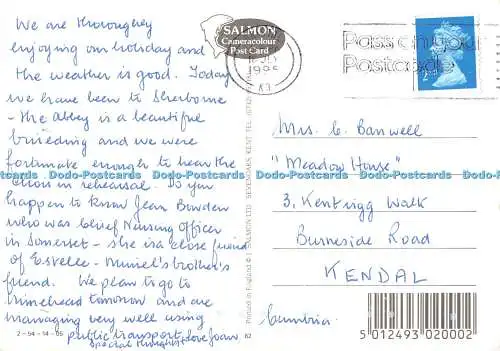 We are thoroughly
enjoying our holiday and
the weather is good. Today
we have been to Sherborne
- the Abbey is a beautiful
building and we were
fortunate enough to hear the
choir in rehearsal. Do you
happen to know Jean Bowden
who was Chief Nursing Officer
in Somerset - she is a close friend
of Estelle - Muriel's brother's
friend. We plan to go to
Minehead tomorrow and are
managing very well using
public transport. love Joan
Special thoughts
2-54-14-06
SALMON
Cameracolour
Post Card
1995
Pass on your
Postcode
2ND
Printed in England © J. SALMON LTD. SEVENOAKS KENT TEL.
62
Mrs. C. Banwell
"Meadow House"
3, Kentrigg Walk
Burneside Road
KENDAL
Cumbria.
5 012493 020002
Dodo-Postcards Dodo-Postcards Dodo-Postcards Dodo-Postcards Dodo-Postcards